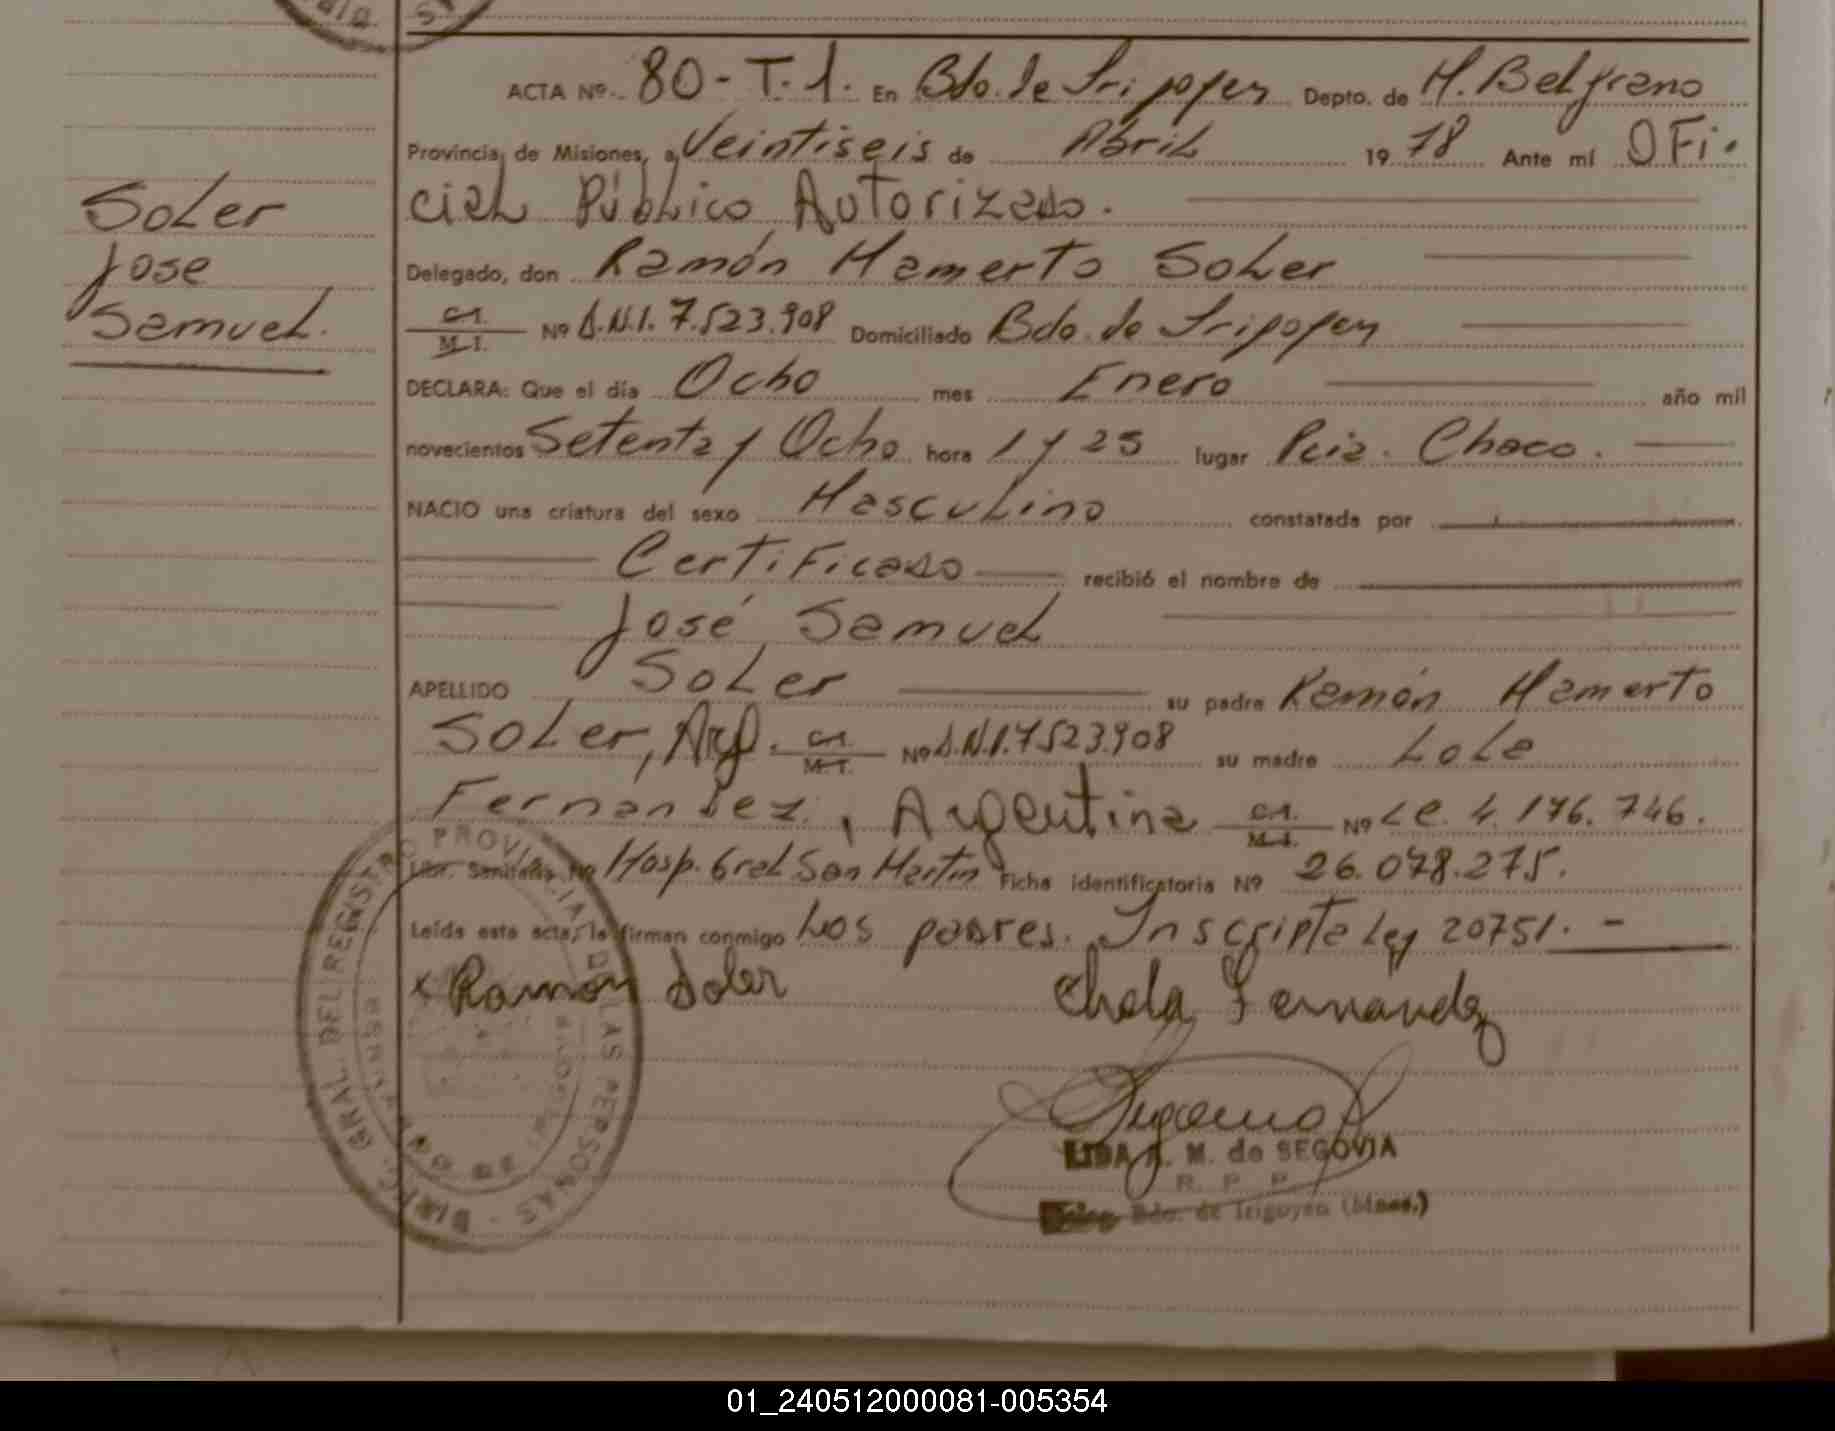 ACTA Nº 80-T.1. En Bdo. de Irigoyen Depto. de M. Belgrano
Provincia de Misiones, a Veintiseis de Abril 19 78 Ante mí OFi-
ciaL PúbLico Autorizado.
Soler
Jose
Samuel.
Delegado, don Ramón Mamerto Soler
C.I.
M.I. Nº D.N.I. 7.523.908 Domiciliado Bdo. de Irigoyen
DECLARA: Que el día Ocho mes Enero año mil
novecientos Setenta y Ocho hora 1 y 25 lugar Pcia. Chaco.
NACIO una criatura del sexo Masculino constatada por
Certificado recibió el nombre de
José Samuel
APELLIDO Soler su padre Ramón Mamerto
Soler, Arg. C.I.
M.I. Nº D.N.I. 7523.908 su madre Lola
Fernandez, Argentina C.I.
M.I. Nº LC. 4.176.746.
Libr. Sanitaria Nº Hosp. Gral San Martín Ficha identificatoria Nº 26.078.275.
Leída esta acta, la firman conmigo Los padres. Inscripta Ley 20751. -
x Ramón Soler Chela Fernandez
LIDA M. de SEGOVIA
R. P. P.
Bdo. de Irigoyen (Mnes.)
GRAL. DEL REGISTRO PROVINCIAL DE LAS PERSONAS
01_240512000081-005354